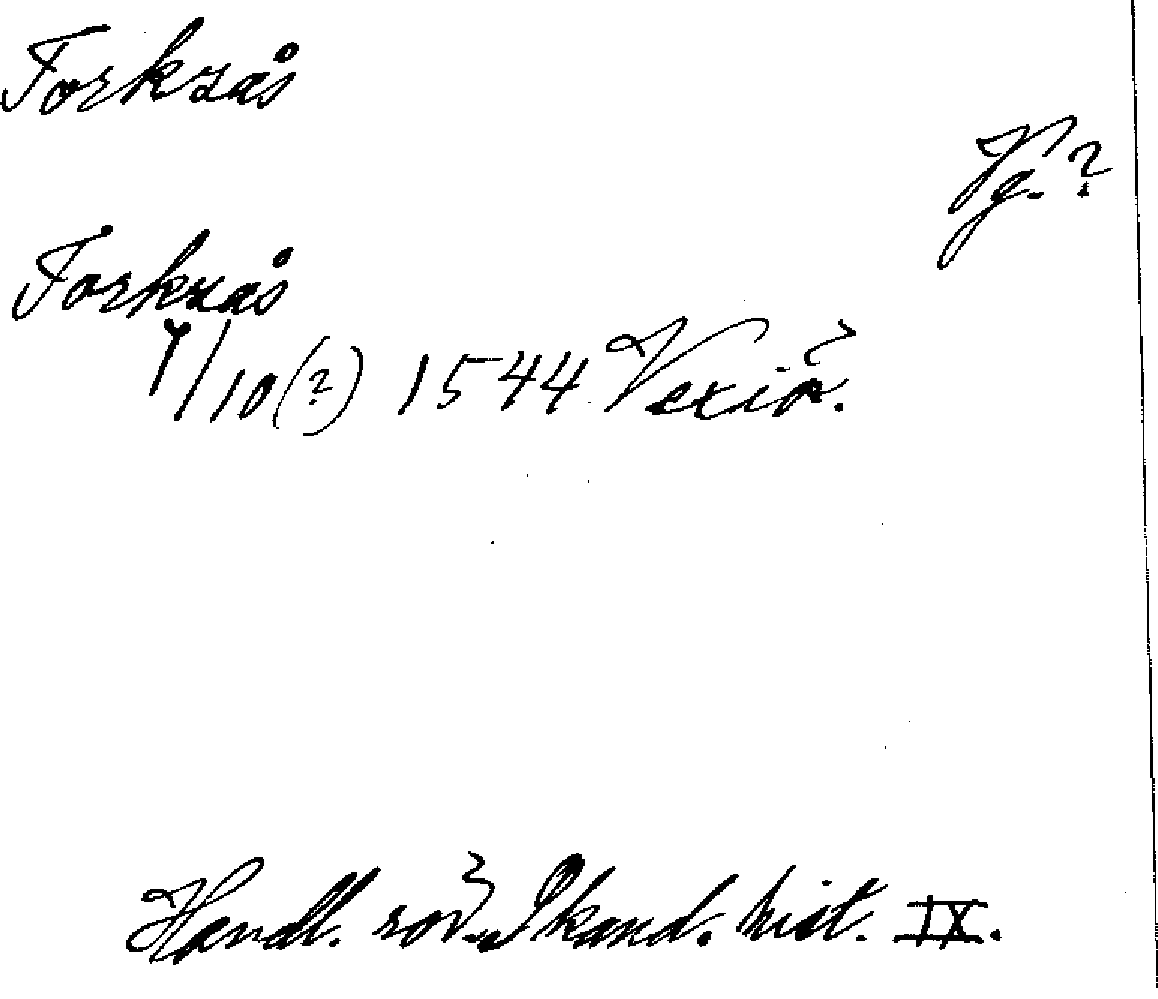 Torkzås
Vg.?
Torkzås
9/10(?) 1544 Vexiö.
Handl. rör. Skand. hist. IX.